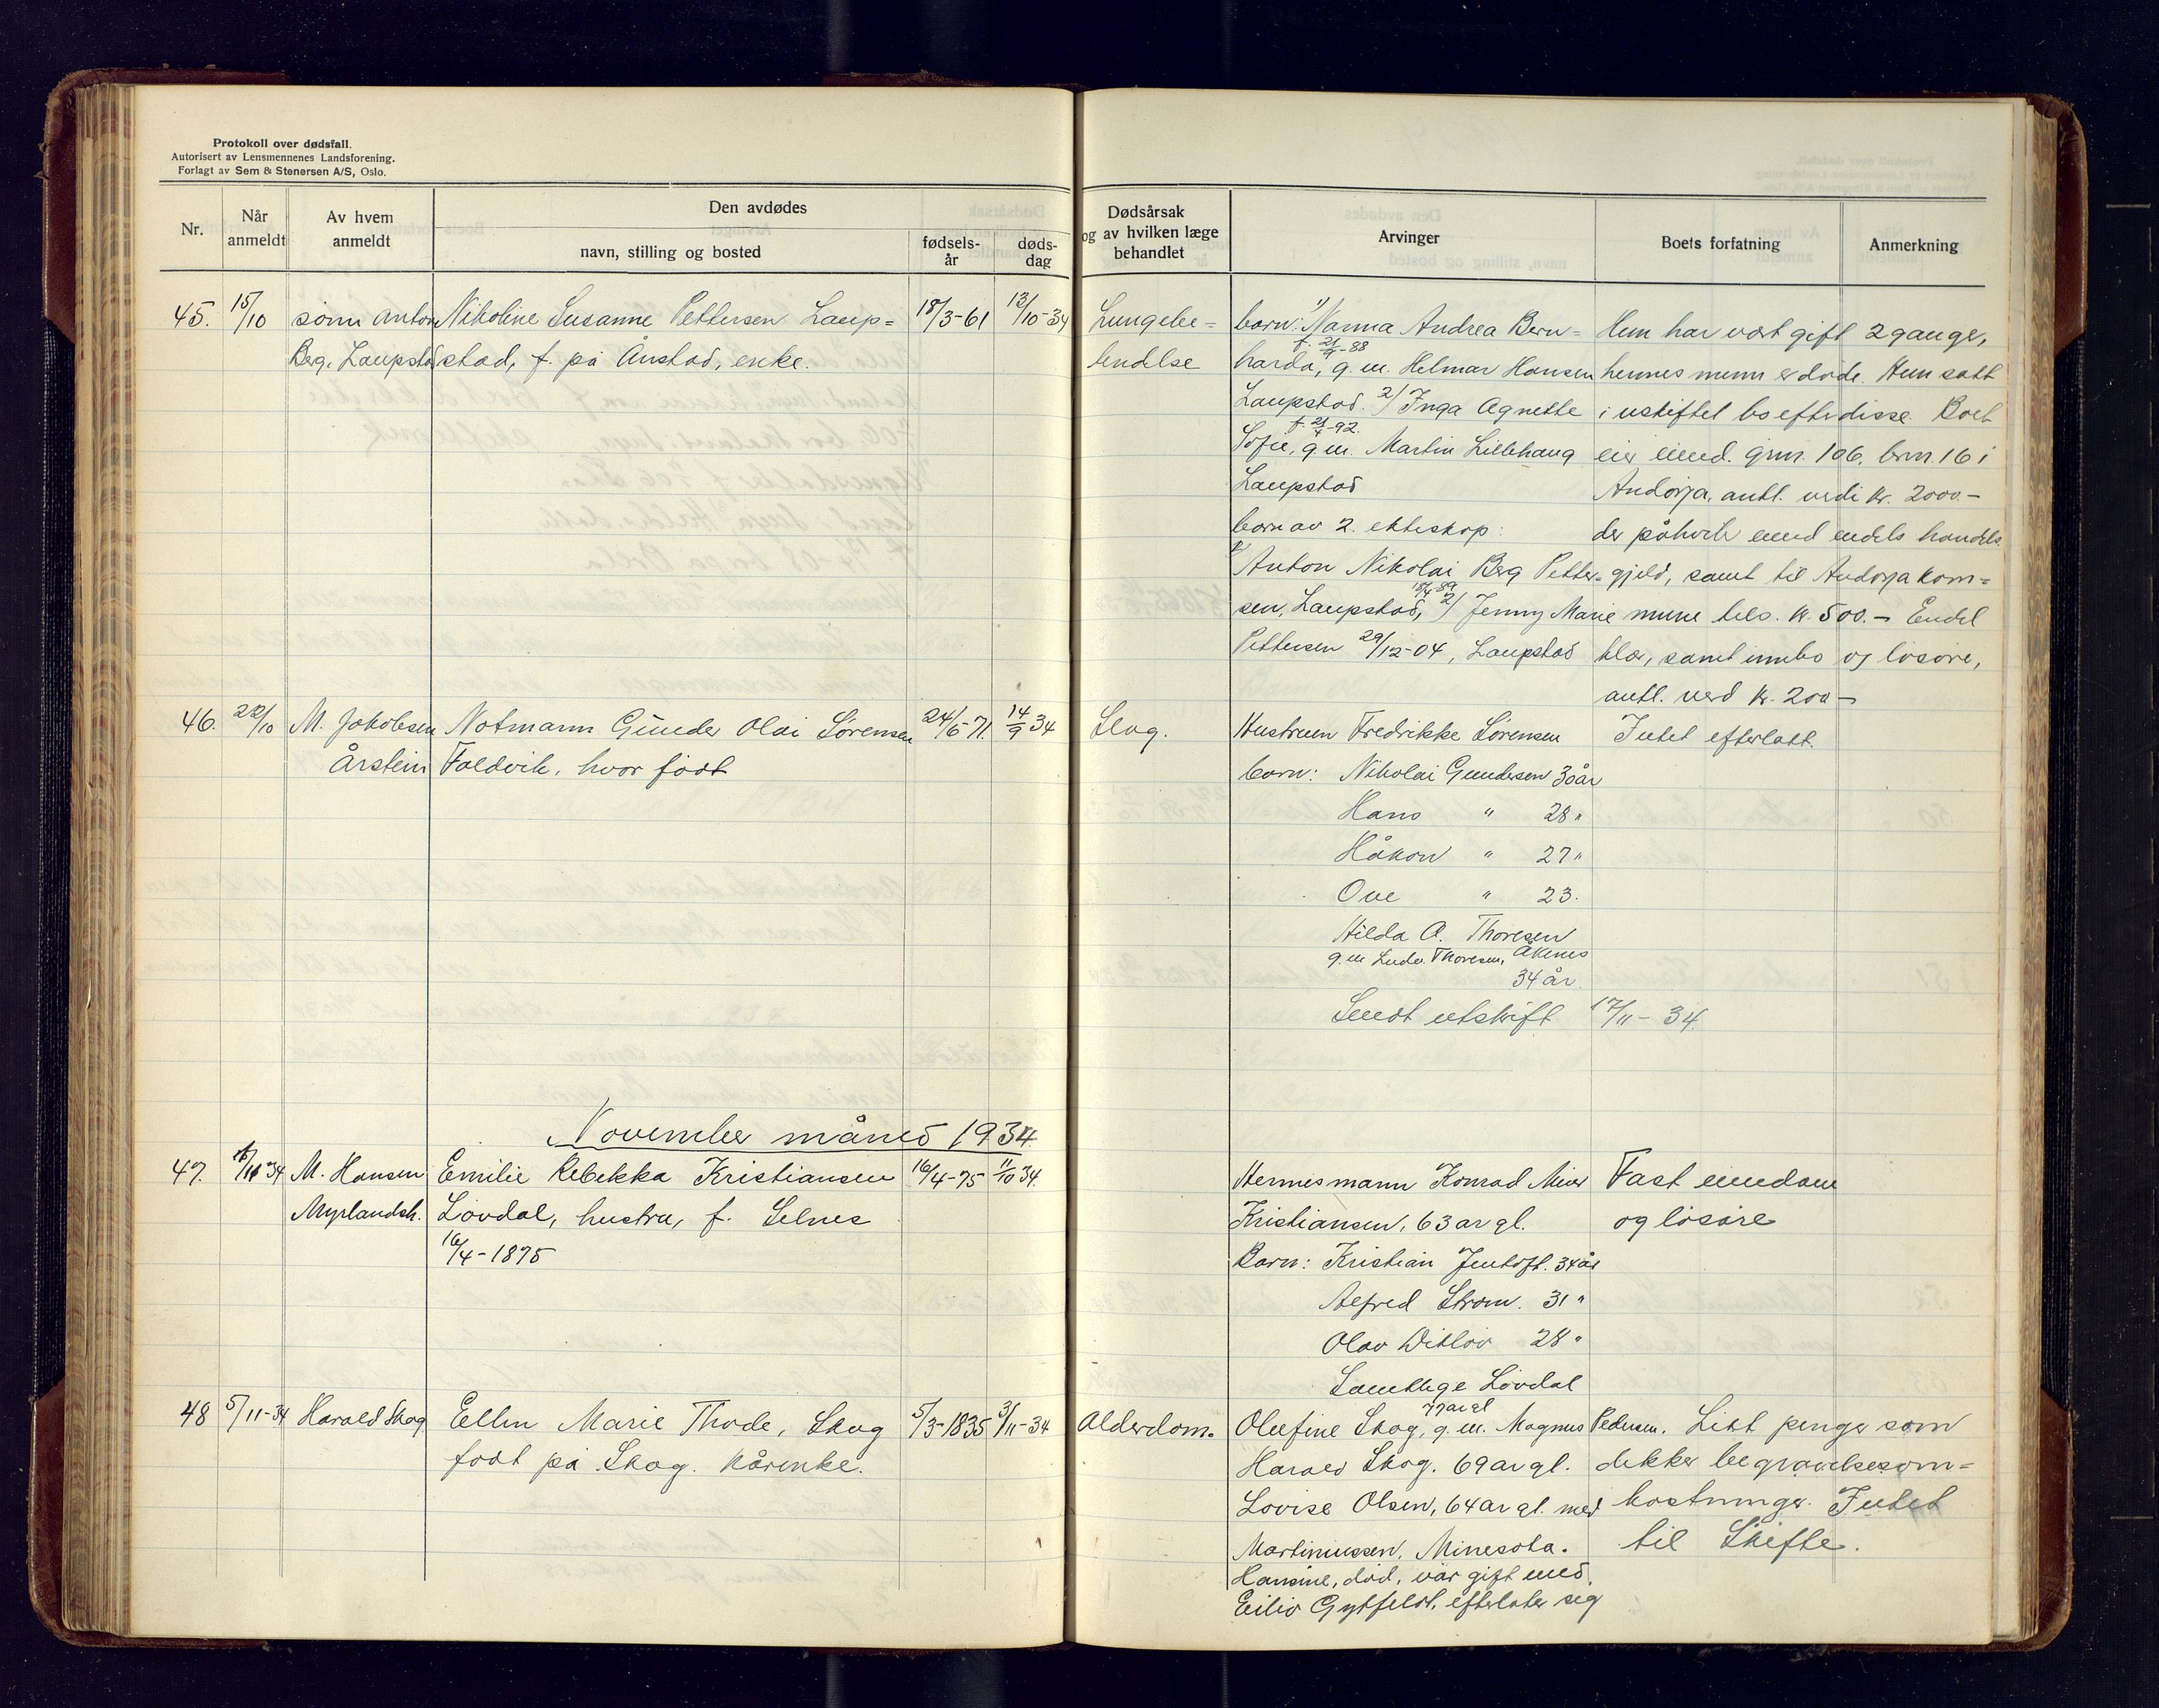 Protokoll over dødsfall.
Autorisert av Lensmennenes Landsforening.
Forlagt av Sem & Stenersen A/S, Oslo.
Nr.
Når anmeldt
Av hvem anmeldt
Den avdødes
navn, stilling og bosted
fødsels-år
døds-dag
Dødsårsak og av hvilken læge behandlet
Arvinger
Boets forfatning
Anmerkning
45. 15/10 sønn Anton Nikoline Susanne Pettersen Laup= 18/3-61 13/10-34
Berg, Laupstad stad, f. på Ånstad, enke.
Lungebe=
tendelse
barn: 1/ Nanna Andrea Bern=
f. 21/9-88
harda, g.m. Helmar Hansen
Laupstad. 2/ Inga Agnethe
f. 21/4-92
Sofie, g.m. Martin Lillehaug
Laupstad
barn av 2. ekteskap:
1/
Anton Nikolai Berg Petter=
18/4-89
sen, Laupstad, 2/ Jenny Marie
Pettersen 29/12-04, Laupstad
Hun har vært gift 2 gange,
hennes menn er døde. Hun satt
i uskiftet bo efter disse. Boet
eier eiend. grn. 106, brn. 16 i
Andørja, antl. verdi kr. 2000-
der påhvile eiend endels handels
gjeld, samt til Andørja kom=
mune tils. kr. 500.- Endel
klær, samt innbo og løsøre,
antl. verd kr. 200-
46. 22/10 M. Jakobsen Notmann Gunder Olai Sørensen 24/6-71. 14/9 34
Årstein Foldvik, hvor født
Slag.
Hustruen Fredrikke Sørensen
barn: Nikolai Gundersen 30 år
Hans " 28 "
Håkon " 27 "
Ove " 23.
Hilda A. Thoresen
g.m Ludv. Thoresen, Åknes
34 år.
Sendt utskrift 17/11-34
Intet efterlatt.
November måned 1934
47. /11 34 M. Hansen Emilie Rebekka Kristiansen 16/4-75 11/10 34.
Myrlandsh. Løvdal, hustru, f. Selnes
16/4-1875
Hennes mann Konrad Meier
Kristiansen, 63 år gl.
Barn: Kristian Jentoft. 34 år
Alfred Strøm. 31 "
Olav Ditlov 28 "
Samtlige Løvdal
Fast eiendom
og løsøre
48 5/11-34 Harald Skog Ellen Marie Thode, Skog 5/3-1835 3/11-34
født på Skog. kårenke.
Alderdom.
77 år gl
Olufine Skog, g.m. Magnus Pedersen.
Harald Skog. 69 år gl.
Lovise Olsen, 64 år gl. med
Martinussen, Minesota.
Hansine, død, var gift med
Eiliv Gyltfeldt, efterlater seg
Litt penger som
dekker begravelsesom=
kostninger. Intet
til Skifte.